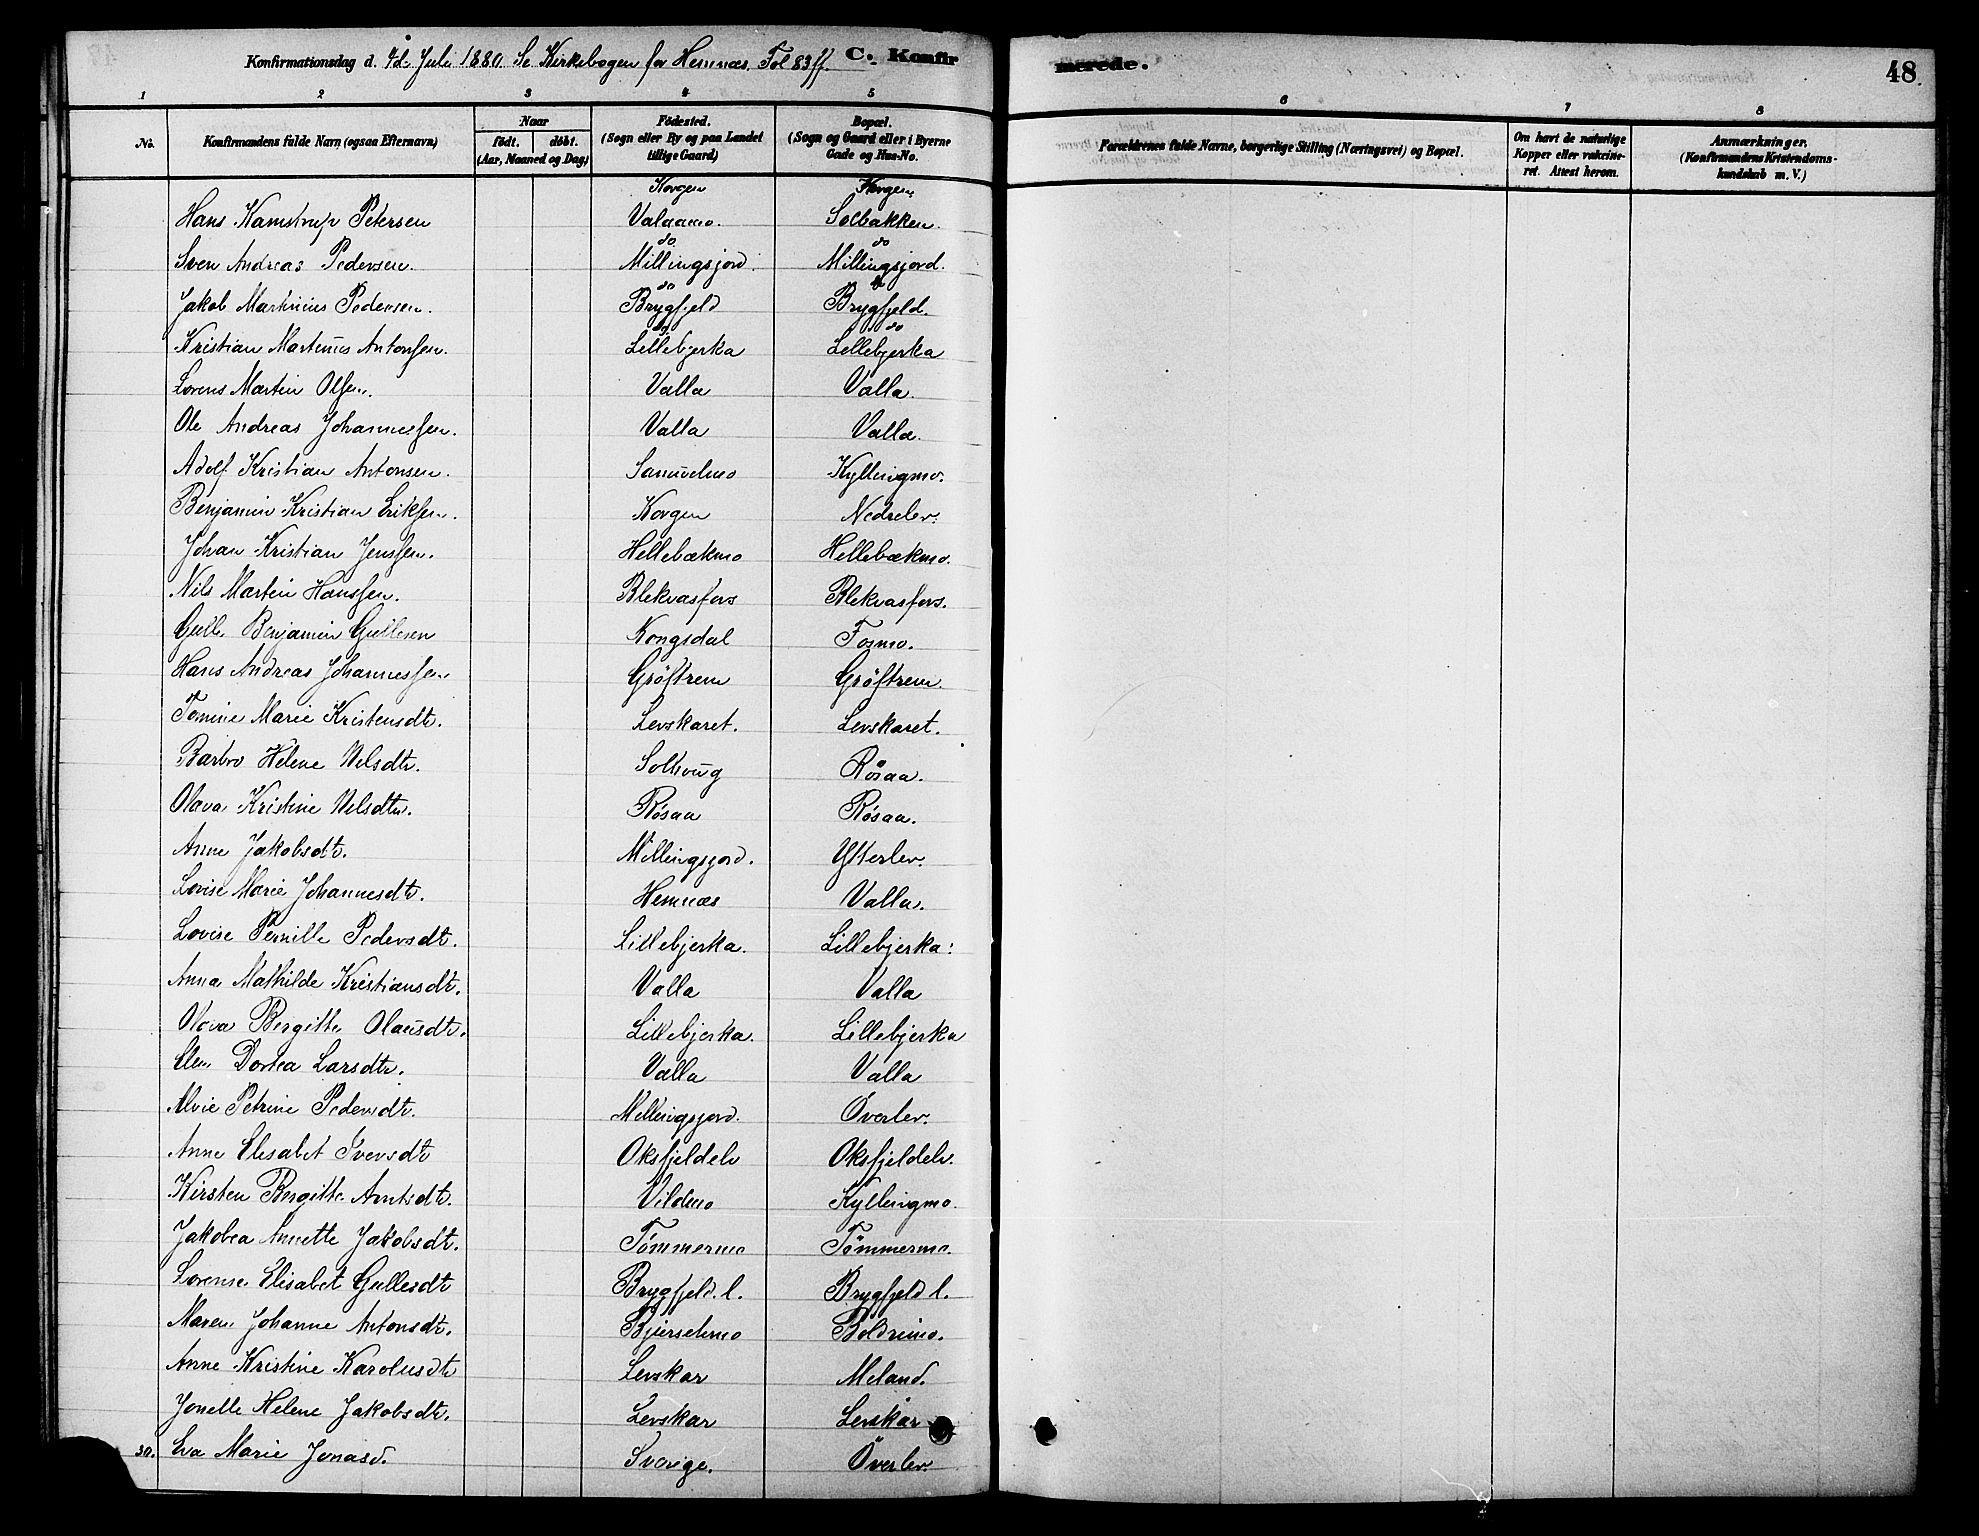 Konfirmationsdag d. 4de Juli 1880. Se Kirkebogen for Hemnæs Fol 83 ff. C. Konfirmerede. 48.
1 2 3 4 5 6 7 8
No. Konfirmandens fulde Navn (ogsaa Efternavn) Naar født. døbt. (Aar, Maaned og Dag) Fødested. (Sogn eller By og paa Landet tillige Gaard) Bopæl. (Sogn og Gaard eller i Byerne Gade og Hus-No. Forældrenes fulde Navne, borgerlige Stilling (Næringsvei) og Bopæl. Om havt de naturlige Kopper eller vakcineret. Attest herom. Anmærkninger. (Konfirmandens Kristendomskundskab m. V.)
Korgen Korgen
Hans Kamstrup Petersen Valaamo. Solbakken.
do do
Sven Andreas Pedersen. Millingsjord. Millingsjord.
do do
Jakob Martinius Pedersen. Brygfjeld Brygfjeld.
do do
Kristian Martinus Antonsen. Lillebjerka Lillebjerka
Lorens Martin Olsen. Valla Valla.
Ole Andreas Johannessen. Valla Valla.
Adolf Kristian Antonsen. Samuelmo Kyllingmo.
Benjamin Kristian Eriksen. Korgen Nedrelev.
Johan Kristian Jenssen. Hellebækmo Hellebækmo.
Nils Martin Hanssen. Blekvasfors Blekvasfors.
Gulle Benjamin Gullesen Kongsdal Fosmo.
Hans Andreas Johannessen Grøftrem Grøftrem.
Tomine Marie Kristensdtr. Levskaret. Levskaret.
Barbro Helene Nelsdtr. Solhoug Røsaa.
Olava Kristine Nelsdtr. Røsaa Røsaa.
Anne Jakobsdtr. Millingsjord. Ytterlev.
Lovise Marie Johannesdtr. Hemnæs Valla.
Lovise Pernille Pedersdtr. Lillebjerka. Lillebjerka.
Anna Mathilde Kristiansdtr. Valla Valla
Olava Bergitte Olausdtr. Lillebjerka. Lillebjerka
Elen Dortea Larsdtr. Valla Valla
Alvie Petrine Pedersdtr. Millingsjord. Överlev.
Anne Elisabet Iversdtr Oksfjeldelv Oksfjeldelv.
Kirsten Bergitte Arntsdtr. Vildmo Kyllingmo.
Jakobea Annette Jakobsdtr. Tömmermo Tömmermo.
Lorense Elisabet Gullesdtr Brygfjeld. l. Brygfjeld l.
Maren Johanne Antonsdtr. Bjurselmo Boldremo.
Anne Kristine Karolusdtr Levskar Meland.
Jonelle Helene Jakobsdtr. Levskar Levskar
30. Eva Marie Jonasd. Sverige. Överlev.